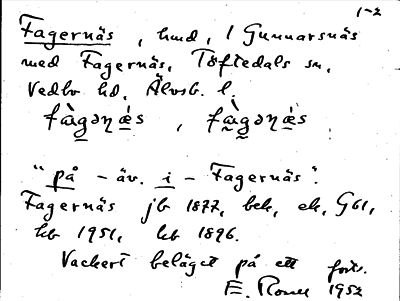 1-2
Fagernäs, hmd, / Gunnarsnäs
med Fagernäs, Töftedals sn,
Vedbo hd, Älvsb. l.
fàgənǽs, fàgənǽs
"på - äv. i - Fagernäs".
Fagernäs jb 1877, bek, ek, G61,
kb 1951, kb 1896.
Vackert beläget på ett
E. 1952